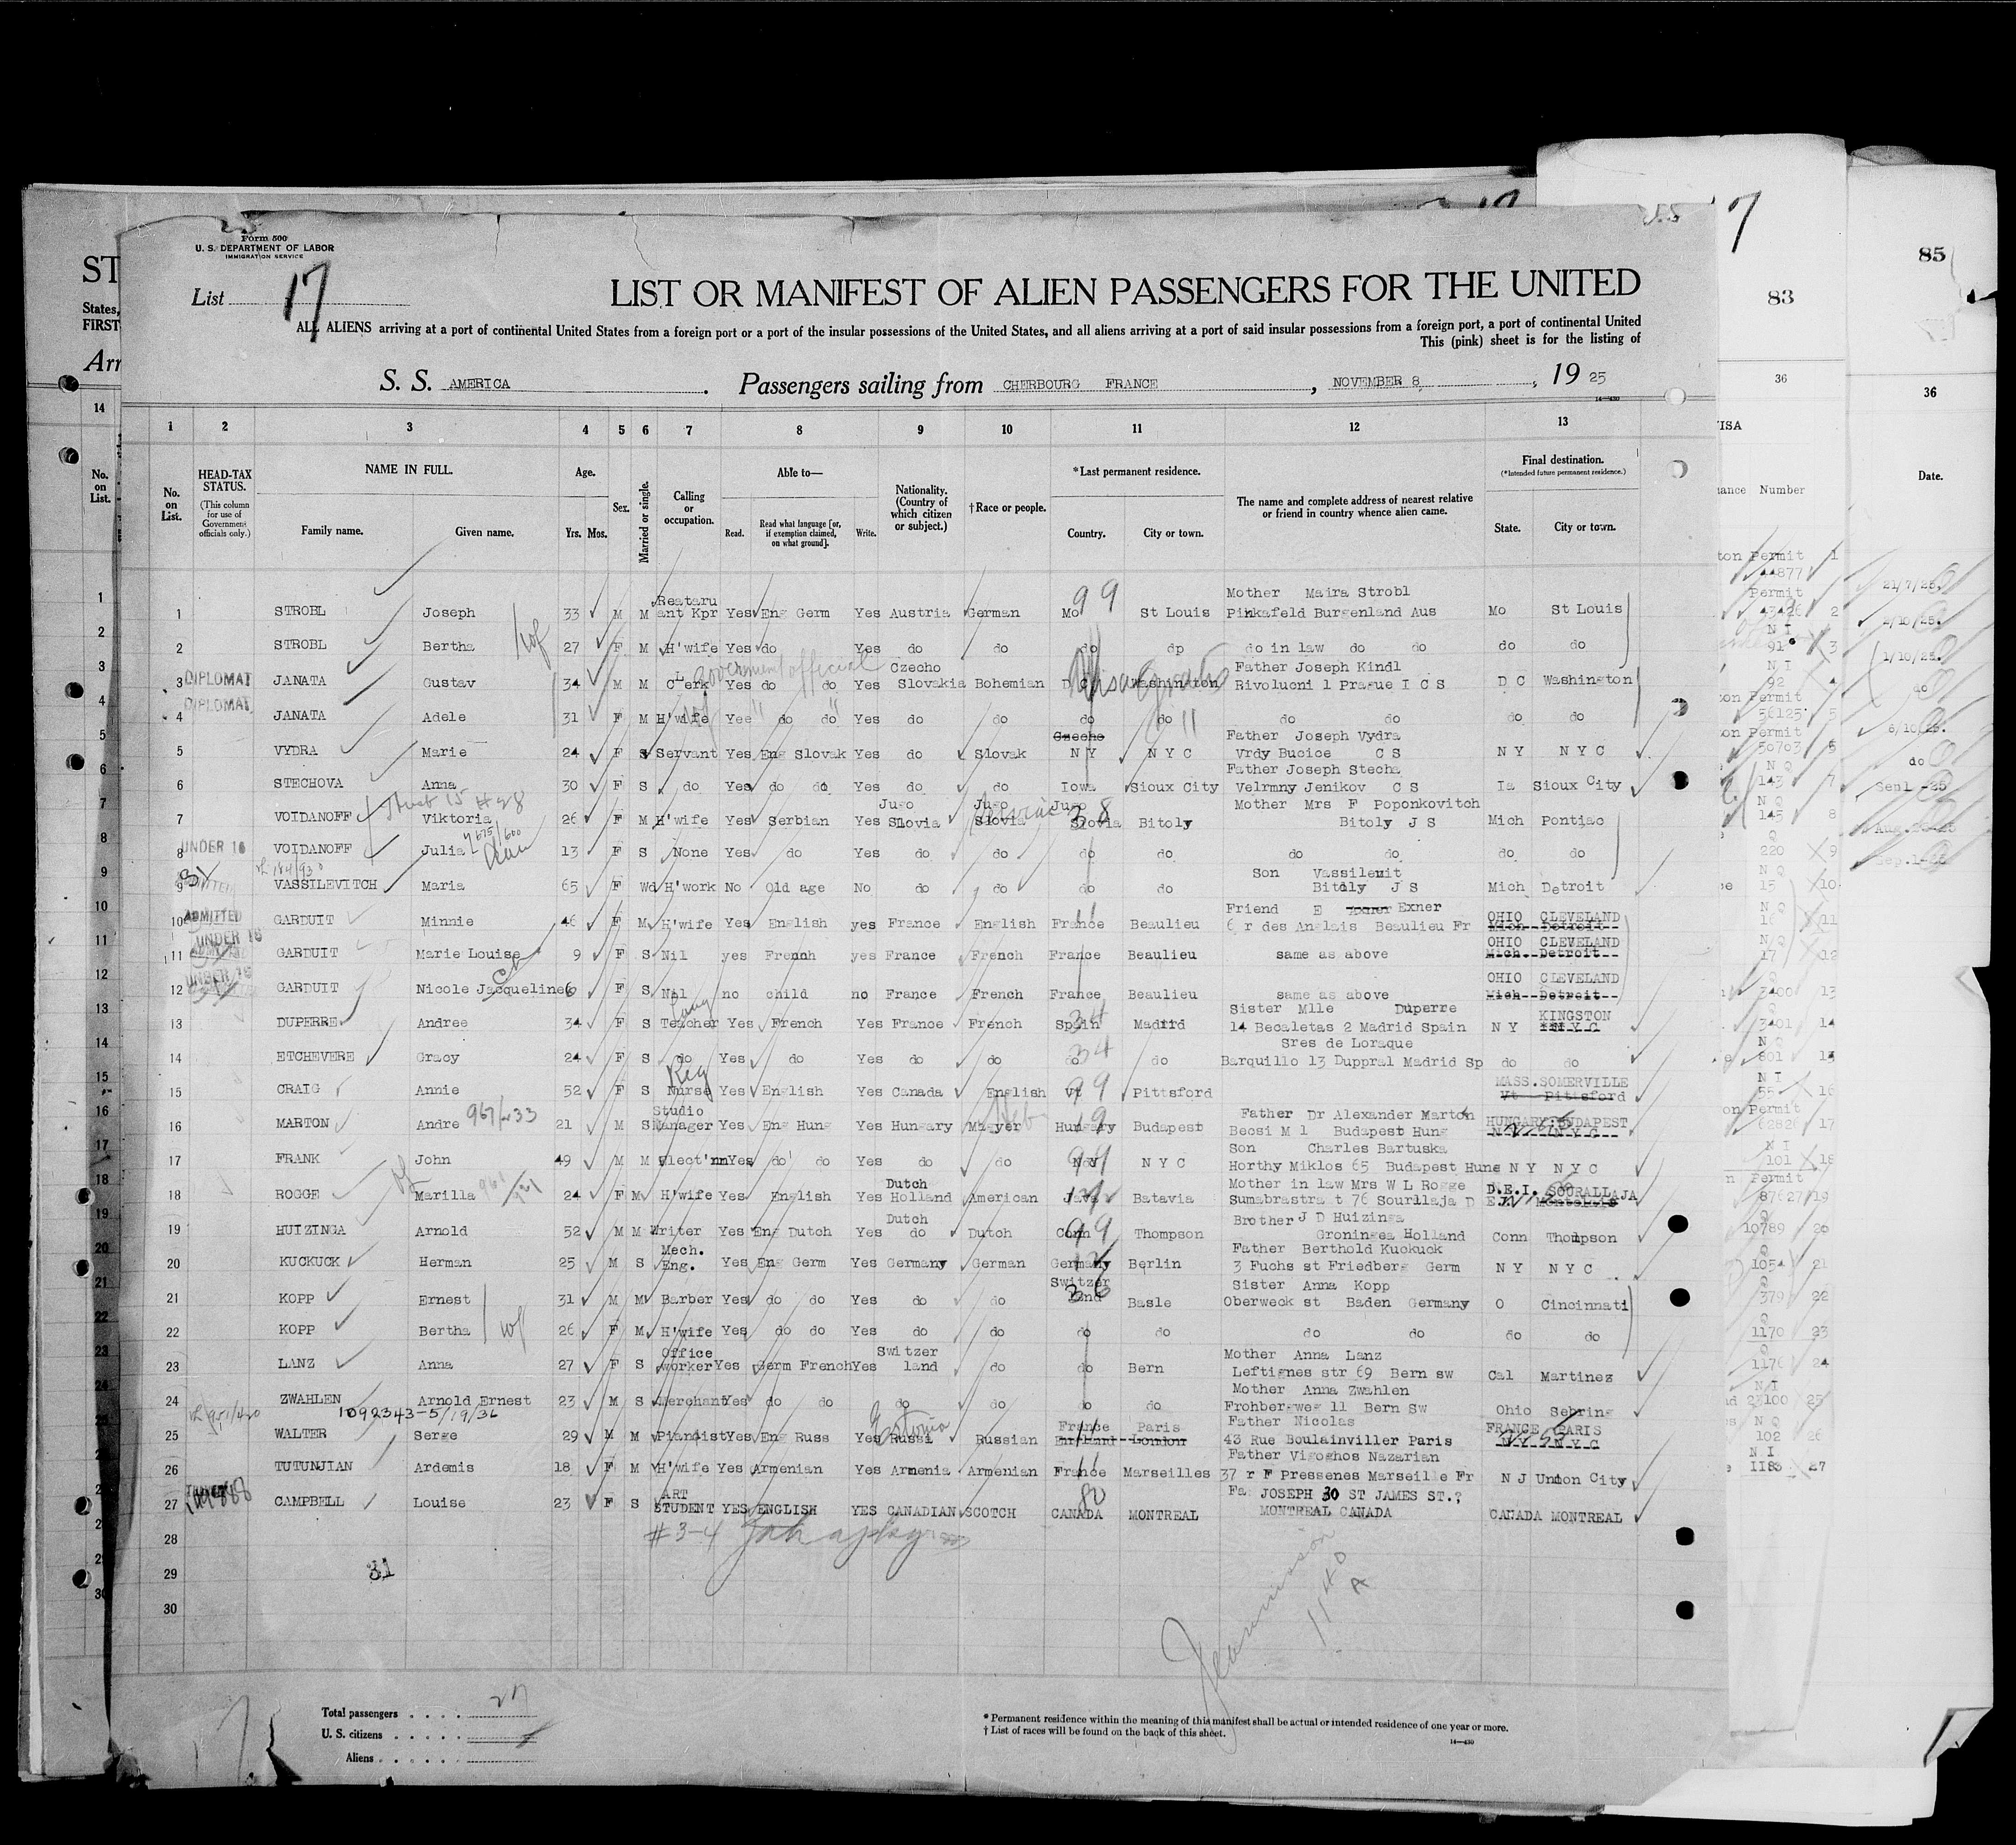 Form 500
U. S. DEPARTMENT OF LABOR
IMMIGRATION SERVICE
List 17
LIST OR MANIFEST OF ALIEN PASSENGERS FOR THE UNITED
ALL ALIENS arriving at a port of continental United States from a foreign port or a port of the insular possessions of the United States, and all aliens arriving at a port of said insular possessions from a foreign port, a port of continental United
This (pink) sheet is for the listing of
S. S. AMERICA. Passengers sailing from CHERBOURG FRANCE, NOVEMBER 8, 1925
1 2 3 4 5 6 7 8 9 10 11 12 13
No. on List.
HEAD-TAX STATUS.
(This column for use of Government officials only.)
NAME IN FULL.
Family name. Given name.
Age.
Yrs. Mos.
Sex.
Married or single.
Calling or occupation.
Able to—
Read. Read what language [or, if exemption claimed, on what ground]. Write.
Nationality. (Country of which citizen or subject.)
†Race or people.
*Last permanent residence.
Country. City or town.
The name and complete address of nearest relative or friend in country whence alien came.
Final destination.
(*Intended future permanent residence.)
State. City or town.
Reataru Mother Maira Strobl
1 STROBL Joseph 33 M M ant Kpr Yes Eng Germ Yes Austria German Mo St Louis Pinkafeld Burgenland Aus Mo St Louis
2 STROBL Bertha wf 27 F M H'wife Yes do Yes do do do dp do in law do do do do
government official Czecho Father Joseph Kindl
3 DIPLOMAT JANATA Gustav 34 M M Clerk Yes do do Yes Slovakia Bohemian D C Washington Rivoluoni 1 Prague I C S D C Washington
4 DIPLOMAT JANATA Adele 31 F M H'wife Yee do do Yes do do do do do do do do
Czecho Father Joseph Vydra
5 VYDRA Marie 24 F S Servant Yes Eng Slovak Yes do Slovak N Y N Y C Vrdy Bucice C S N Y N Y C
Father Joseph Stecha
6 STECHOVA Anna 30 F S do Yes do do Yes do do Iowa Sioux City Velrmny Jenikov C S Ia Sioux City
Jugo Jugo Jugo Mother Mrs F Poponkovitch
7 VOIDANOFF Viktoria 26 F M H'wife Yes Serbian Yes Slovia Slovia Slovia Bitoly Bitoly J S Mich Pontiac
8 UNDER 16 VOIDANOFF Julia 13 F S None Yes do Yes do do do do do do do do
Son Vassilevit
9 VASSILEVITCH Maria 65 F Wd H'work No Old age No do do do do Bitoly J S Mich Detroit
Friend E Exner
10 ADMITTED GARDUIT Minnie 46 F M H'wife Yes English yes France English France Beaulieu 6 r des Anglais Beaulieu Fr OHIO CLEVELAND
Mich Detroit
11 UNDER 16 GARDUIT Marie Louise 9 F S Nil yes French yes France French France Beaulieu same as above OHIO CLEVELAND
Mich Detroit
12 UNDER 16 GARDUIT Nicole Jacqueline 6 F S Nil no child no France French France Beaulieu same as above OHIO CLEVELAND
Mich Detroit
Sister Mlle Duperre KINGSTON
13 DUPERRE Andree 34 F S Teacher Yes French Yes France French Spain Madrid 14 Becaletas 2 Madrid Spain N Y N Y C
Sres de Loraque
14 ETCHEVERE Gracy 24 F S do Yes do Yes do do do do Barquillo 13 Duppral Madrid Sp do do
Reg MASS. SOMERVILLE
15 CRAIG Annie 52 F S Nurse Yes English Yes Canada English Vt Pittsford Vt Pittsford
Studio Father Dr Alexander Marton HUNGARY BUDAPEST
16 MARTON Andre 21 M S Manager Yes Eng Hung Yes Hungary Magyer Hungary Budapest Becsi M 1 Budapest Hung N Y N Y C
Son Charles Bartuska
17 FRANK John 49 M M Elect'nn Yes do do Yes do do N Y N Y C Horthy Miklos 65 Budapest Hung N Y N Y C
Dutch Mother in law Mrs W L Rogge D.E.I. SOURALLAJA
18 ROGGE Marilla 24 F M H'wife Yes English Yes Holland American Java Batavia Sumabrastra t 76 Sourllaja D E I
Dutch Brother J D Huizinga
19 HUIZINGA Arnold 52 M M Writer Yes Eng Dutch Yes do Dutch Conn Thompson Groningea Holland Conn Thompson
Mech. Father Berthold Kuckuck
20 KUCKUCK Herman 25 M S Eng. Yes Eng Germ Yes Germany German Germany Berlin 3 Fuchs st Friedberg Germ N Y N Y C
Switzer Sister Anna Kopp
21 KOPP Ernest 31 M M Barber Yes do do Yes do do land Basle Oberweck st Baden Germany O Cincinnati
22 KOPP Bertha wf 26 F M H'wife Yes do do Yes do do do do do do do do
Office Switzer Mother Anna Lanz
23 LANZ Anna 27 F S worker Yes Germ French Yes land do do Bern Leftignes str 69 Bern sw Cal Martinez
Mother Anna Zwahlen
24 ZWAHLEN Arnold Ernest 23 M S Merchant Yes do do do do do do Frohbergweg 11 Bern Sw Ohio Sebring
1092343-5/19/36
Estonia France Paris Father Nicolas FRANCE PARIS
25 WALTER Serge 29 M M Pianist Yes Eng Russ Yes Russi Russian England London 43 Rue Boulainviller Paris N Y N Y C
Father Vigoghos Nazarian
26 TUTUNJIAN Ardemis 18 F M H'wife Yes Armenian Yes Armenia Armenian France Marseilles 37 r F Pressenes Marseille Fr N J Union City
ART Fa JOSEPH 30 ST JAMES ST.?
27 CAMPBELL Louise 23 F S STUDENT YES ENGLISH YES CANADIAN SCOTCH CANADA MONTREAL MONTREAL CANADA CANADA MONTREAL
28 #3-4
29 31
30
Total passengers 27
U. S. citizens
Aliens
* Permanent residence within the meaning of this manifest shall be actual or intended residence of one year or more.
† List of races will be found on the back of this sheet.
14—430
83
85
36
36
Number
Date.